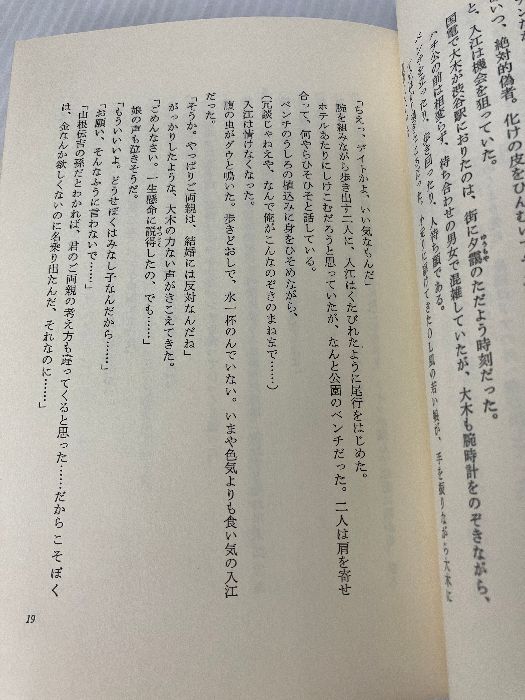 いつ、絶対的偽者。化けの皮をひん
と、入江は機会を狙っていた。
国電で大木が渋谷駅におりたのは、街に夕靄のただよう時刻だった。
チ公の前は相変らず、待ち合わせの男女で混雑していたが、大木も腕時計をのぞきながら、
人待ち顔である。
「ちえっ、デイトかよ、いい気なもんだ」
腕を組みながら歩き出す二人に、入江はくたびれたように尾行をはじめた。
ホテルあたりにしけこむだろうと思っていたが、なんと公園のベンチだった。二人は肩を寄せ
合って、何やらひそひそと話している。
ベンチのうしろの植込みに身をひそめながら、
(冗談じゃねえや、なんで俺がこんなのぞきのまねまで……)
入江は情けなくなった。
腹の虫がグウと鳴いた。歩きどおしで、水一杯のんでいない。いまや色気よりも食い気の入江
だった。
「そうか。やっぱりご両親は、結婚には反対なんだね」
がっかりしたような、大木の力ない声がきこえてきた。
「ごめんなさい。一生懸命に説得したの、でも……」
娘の声も泣きそうだ。
「もういいよ。どうせぼくはみなし子なんだから……」
「お願い、そんなふうに言わないで……」
「山根伝吉の孫だとわかれば、君のご両親の考え方も違ってくると思った……だからこそぼく
は、金なんか欲しくないのに名乗り出たんだ、それなのに……」
19